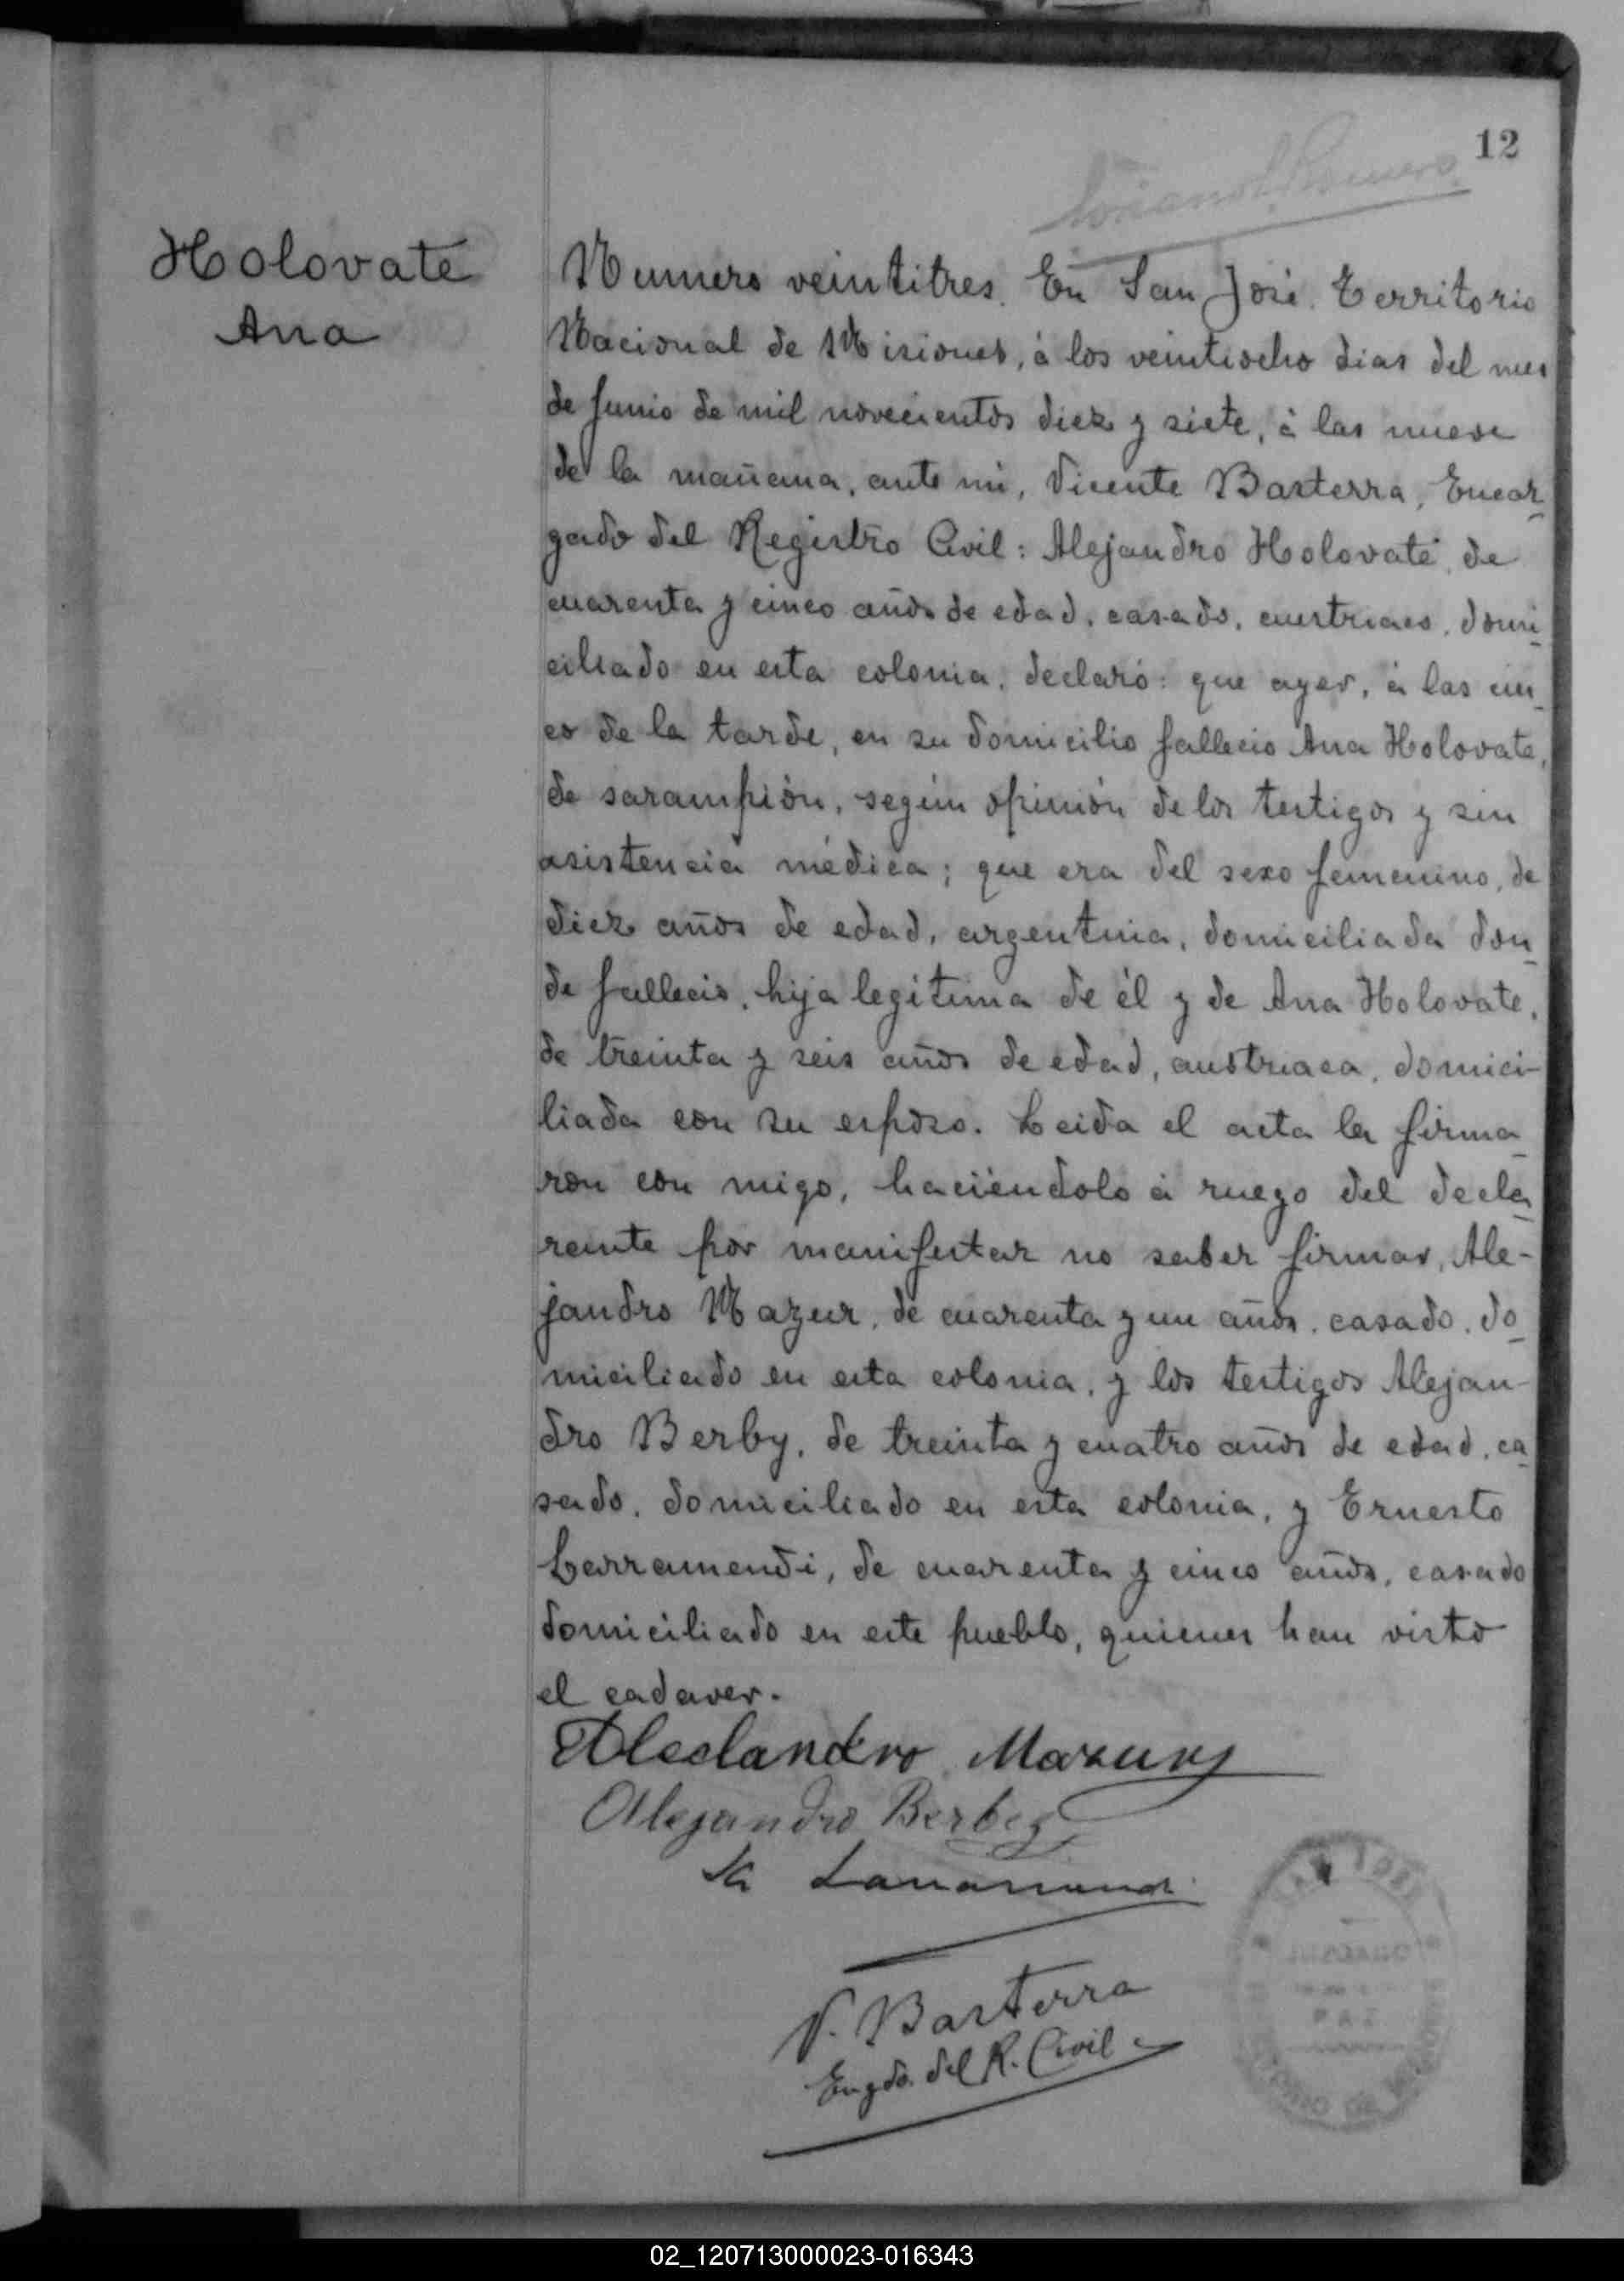 12
Holovate
Ana
Numero veintitres. En San José. Territorio
Nacional de Misiones, á los veintiocho dias del mes
de Junio de mil novecientos diez y siete, á las nueve
de la mañana, ante mi, Vicente Basterra, Encar_
gado del Registro Civil: Alejandro Holovate, de
cuarenta y cinco años de edad, casado, austriaco, domi_
ciliado en esta colonia, declaró: que ayer, á las cin_
co de la tarde, en su domicilio fallecio Ana Holovate,
de sarampión, según opinión de los testigos y sin
asistencia médica; que era del sexo femenino, de
diez años de edad, argentina, domiciliada don_
de fallecio, hija legitima de él y de Ana Holovate,
de treinta y seis años de edad, austriaca, domici-
liada con su esposo. Leida el acta la firma_
ron con migo, haciéndolo á ruego del decla_
rante por manifestar no saber firmar, Ale-
jandro Mazur, de cuarenta y un años, casado, do_
miciliado en esta colonia, y los testigos Alejan-
dro Berby, de treinta y cuatro años de edad, ca_
sado, domiciliado en esta colonia, y Ernesto
Larramendi, de cuarenta y cinco años, casado
domiciliado en este pueblo, quienes han visto
el cadaver.
Aleclandro Mazury
Alejandro Berbez
Larramendi
V. Basterra
Engdo. del R. Civil
SAN JOSÉ
JUZGADO
PAZ
02_120713000023-016343